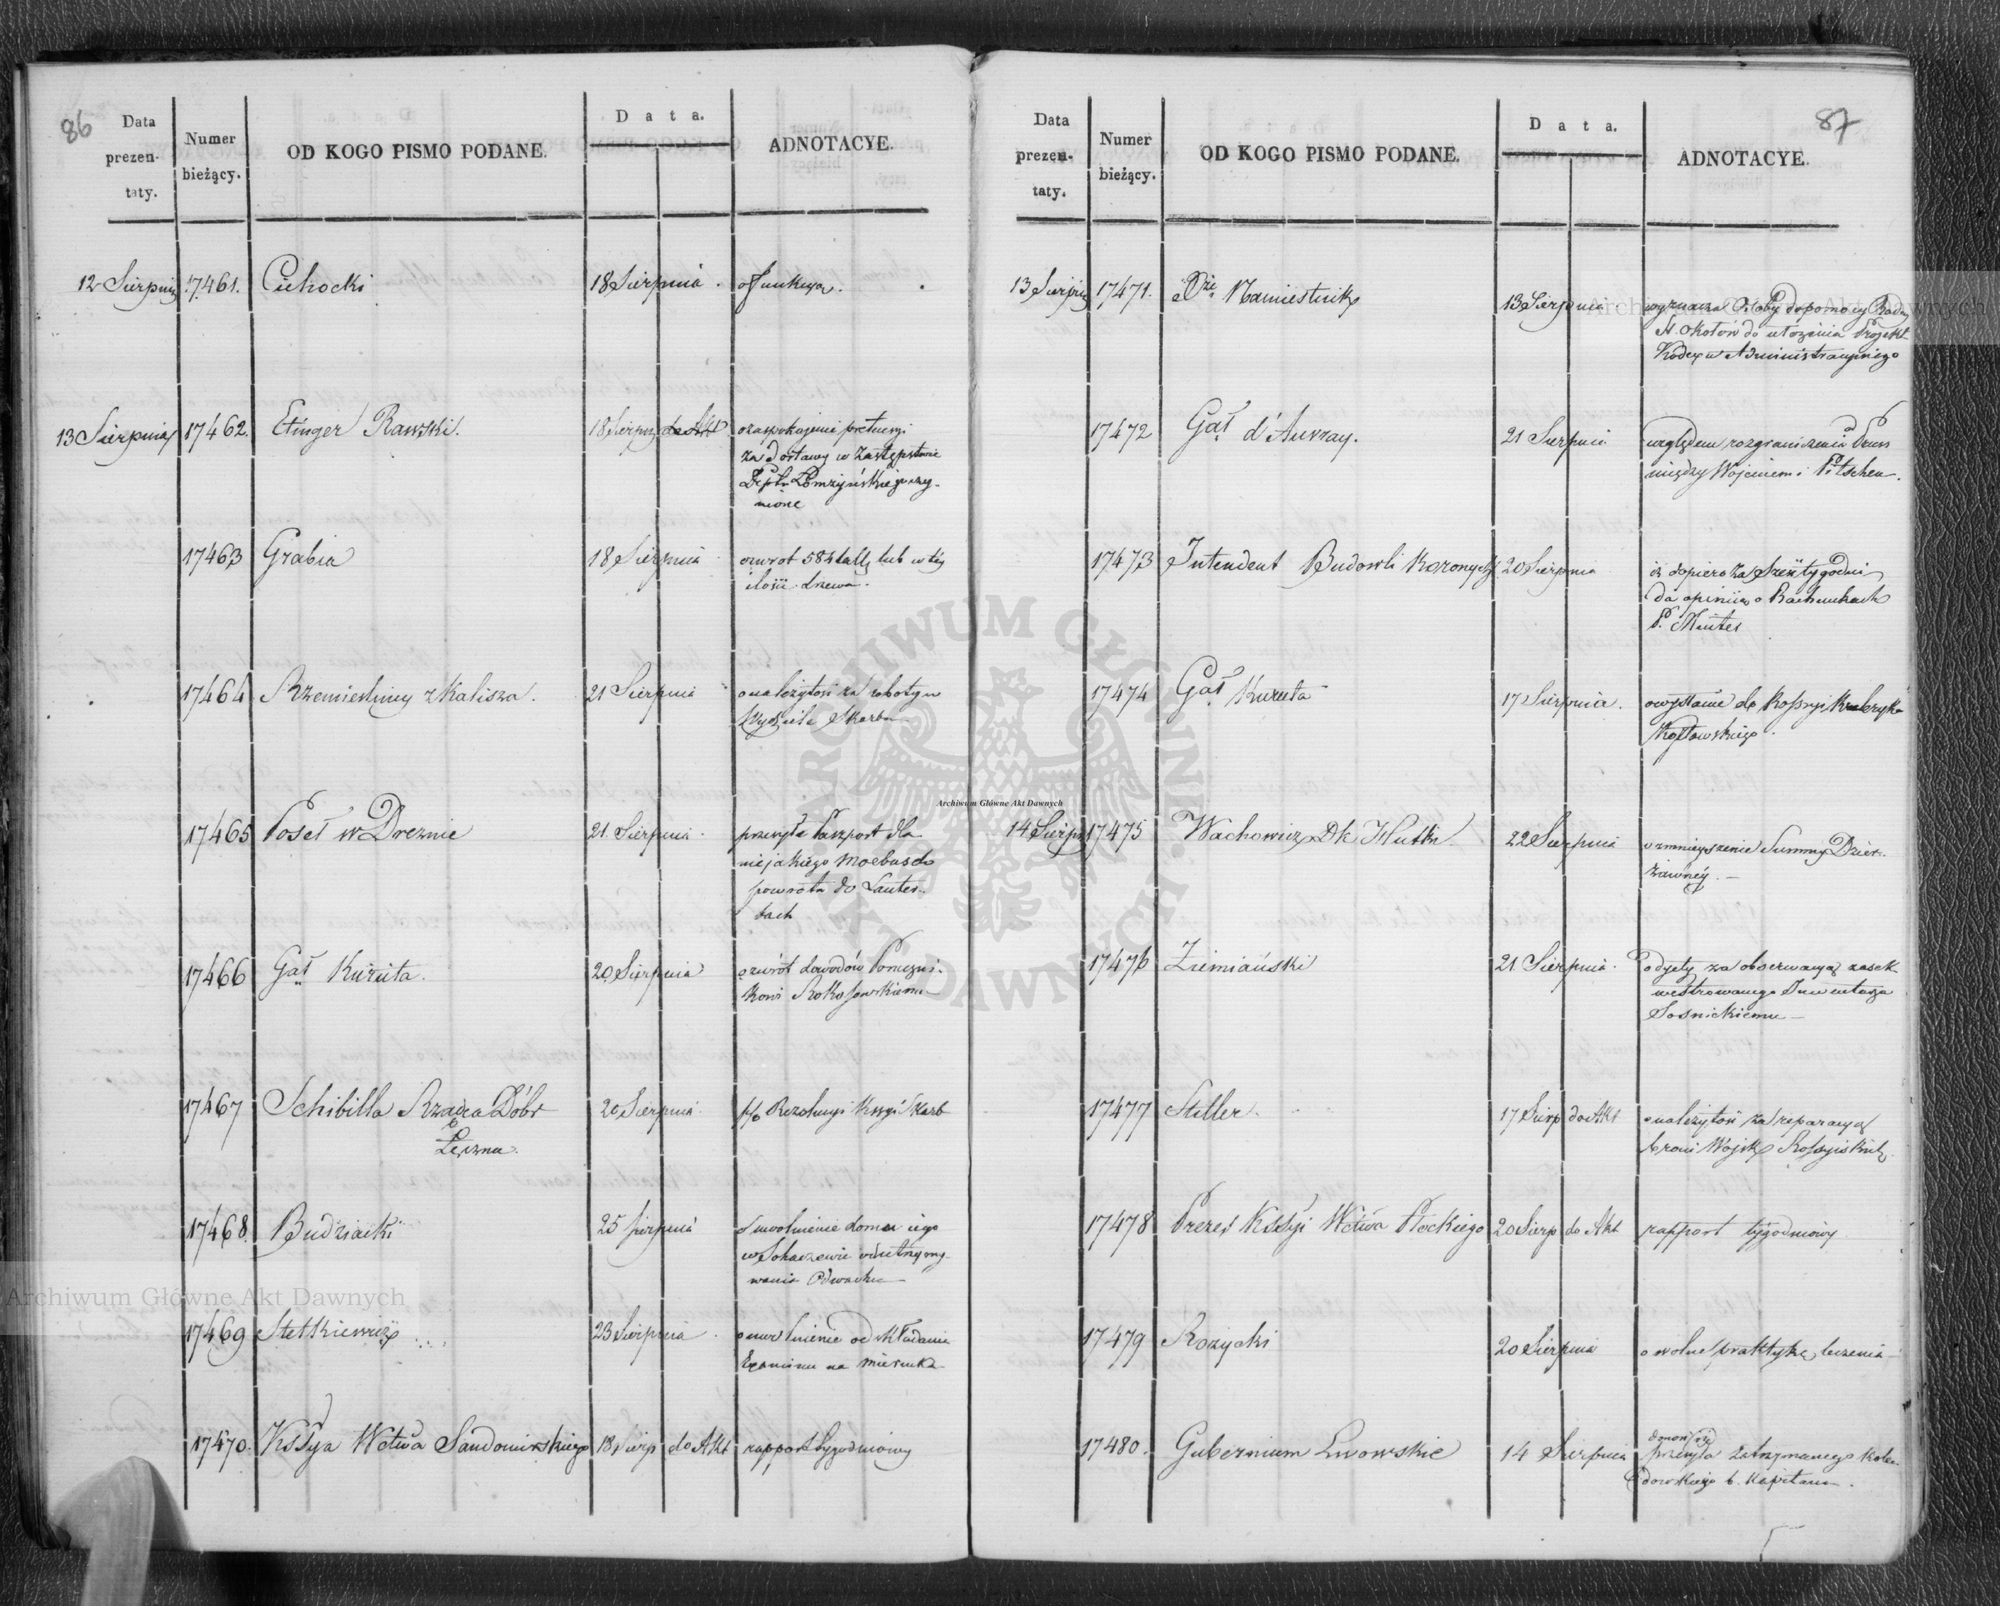 86
Data prezentaty.
Numer bieżący.
OD KOGO PISMO PODANE.
Data.
ADNOTACYE.
12 Sierpnia 17461. Cichocki 18 Sierpnia o funkcyą.
13 Sierpnia 17462. Etinger Rawski. 18 Sierpn do Akt o zaspokojenie pretensyi
za dostawy w zastępstwie
Łomżyńskiego
nione
17463 Grabia 18 Sierpnia o zwrot 584 tall lub w téy
ilości drzewa.
17464 Rzemieślnicy z Kalisza. 21 Sierpnia o należytość za roboty w
Wydziele Skarbu
17465 Poseł w Dreznie 21 Sierpnia przesyła Paszport dla
niejakiego Moebus do
powrotu do Lauter-
bach
17466 Gał Kuruta. 20 Sierpnia o zwrót dowodów Poruczni-
kowi Rokossowskiemu
17467 Schibilla Rządca Dóbr 20 Sierpnia p/o Rezolucyi Kssyi Skarb
Łęczna.
17468. Budziacki 25 Sierpnia o uwolnienie domu iego
w Sochaczewie od utrzymy-
wania Odwachu
17469 Stetkiewicz 23 Sierpnia o uwolnienie od składania
Examinu na miernika
17470. Kssya Wctwa Sandomirskiego 18 Sierp do Akt rapport tygodniowy
87
Data prezentaty.
Numer bieżący.
OD KOGO PISMO PODANE.
Data.
ADNOTACYE.
13 Sierpnia 17471. Xże Namiestnik 13 Sierpnia wyznacza Osoby do pomocy Radcy
St. Okołów do ułożenia Projekt
Kodexu Administracyinego
17472 Gał d'Auvray. 21 Sierpnia względem rozgraniczenia Pruss
między Wojcinem i Pitschen.
17473 Intendent Budowli Koronych 20 Sierpnia iż dopiero za sześć tygodni
da opinią o Rachunkach
P. Minter
17474 Gał Kuruta 17 Sierpnia. o wysłanie do Rossyi
Kozłowskiego.
14 Sierpn 17475 Wachowicz Dk Huttn 22 Sierpnia o zmnieyszenie Summy Dzier-
żawnéy.
17476 Ziemiański 21 Sierpnia. o dyety za obserwacyą zasek-
westrowanego Inwentarza
Sosnickiemu
17477 Stiller. 17 Sierp do Akt o należytość za reparacyą
broni Wojsk Rossyiskich
17478 Prezes Kssyi Wctwa Płockiego 20 Sierp do Akt rapport tygodniowy
17479 Rożycki 20 Sierpnia o wolne praktykę leczenia
17480. Gubernium Lwowskie 14 Sierpnia
przesyła zatrzymanego Kolen-
dowskiego b. Kapitana.
ARCHIWUM GŁÓWNE AKT DAWNYCH
Archiwum Główne Akt Dawnych
Archiwum Główne Akt Dawnych
Archiwum Główne Akt Dawnych